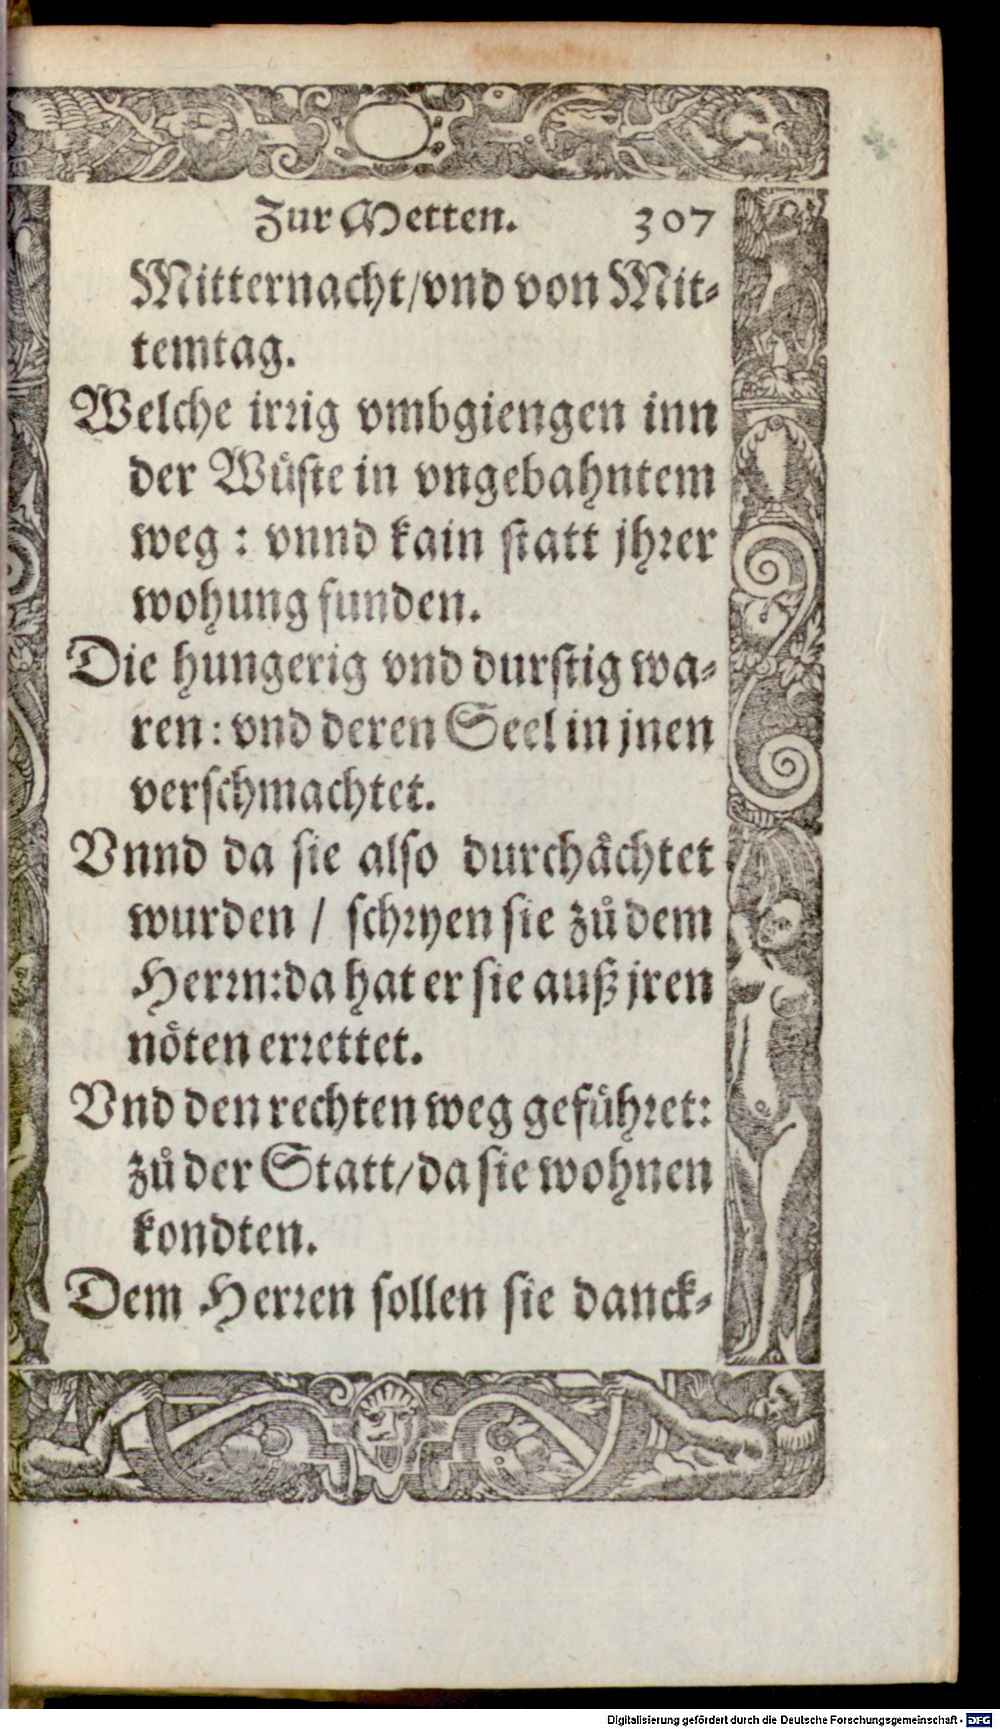 Zur Metten. 307
Mitternacht/vnd von Mit-
temtag.
Welche irrig vmbgiengen inn
der Wüste in vngebahntem
weg : vnnd kain statt jhrer
wohung funden.
Die hungerig vnd durstig wa-
ren: vnd deren Seel in jnen
verschmachtet.
Vnnd da sie also durchächtet
wurden / schryen sie zů dem
Herrn: da hat er sie auß jren
nöten errettet.
Vnd den rechten weg geführet:
zů der Statt/da sie wohnen
kondten.
Dem Herren sollen sie danck-
Digitalisierung gefördert durch die Deutsche Forschungsgemeinschaft - DFG